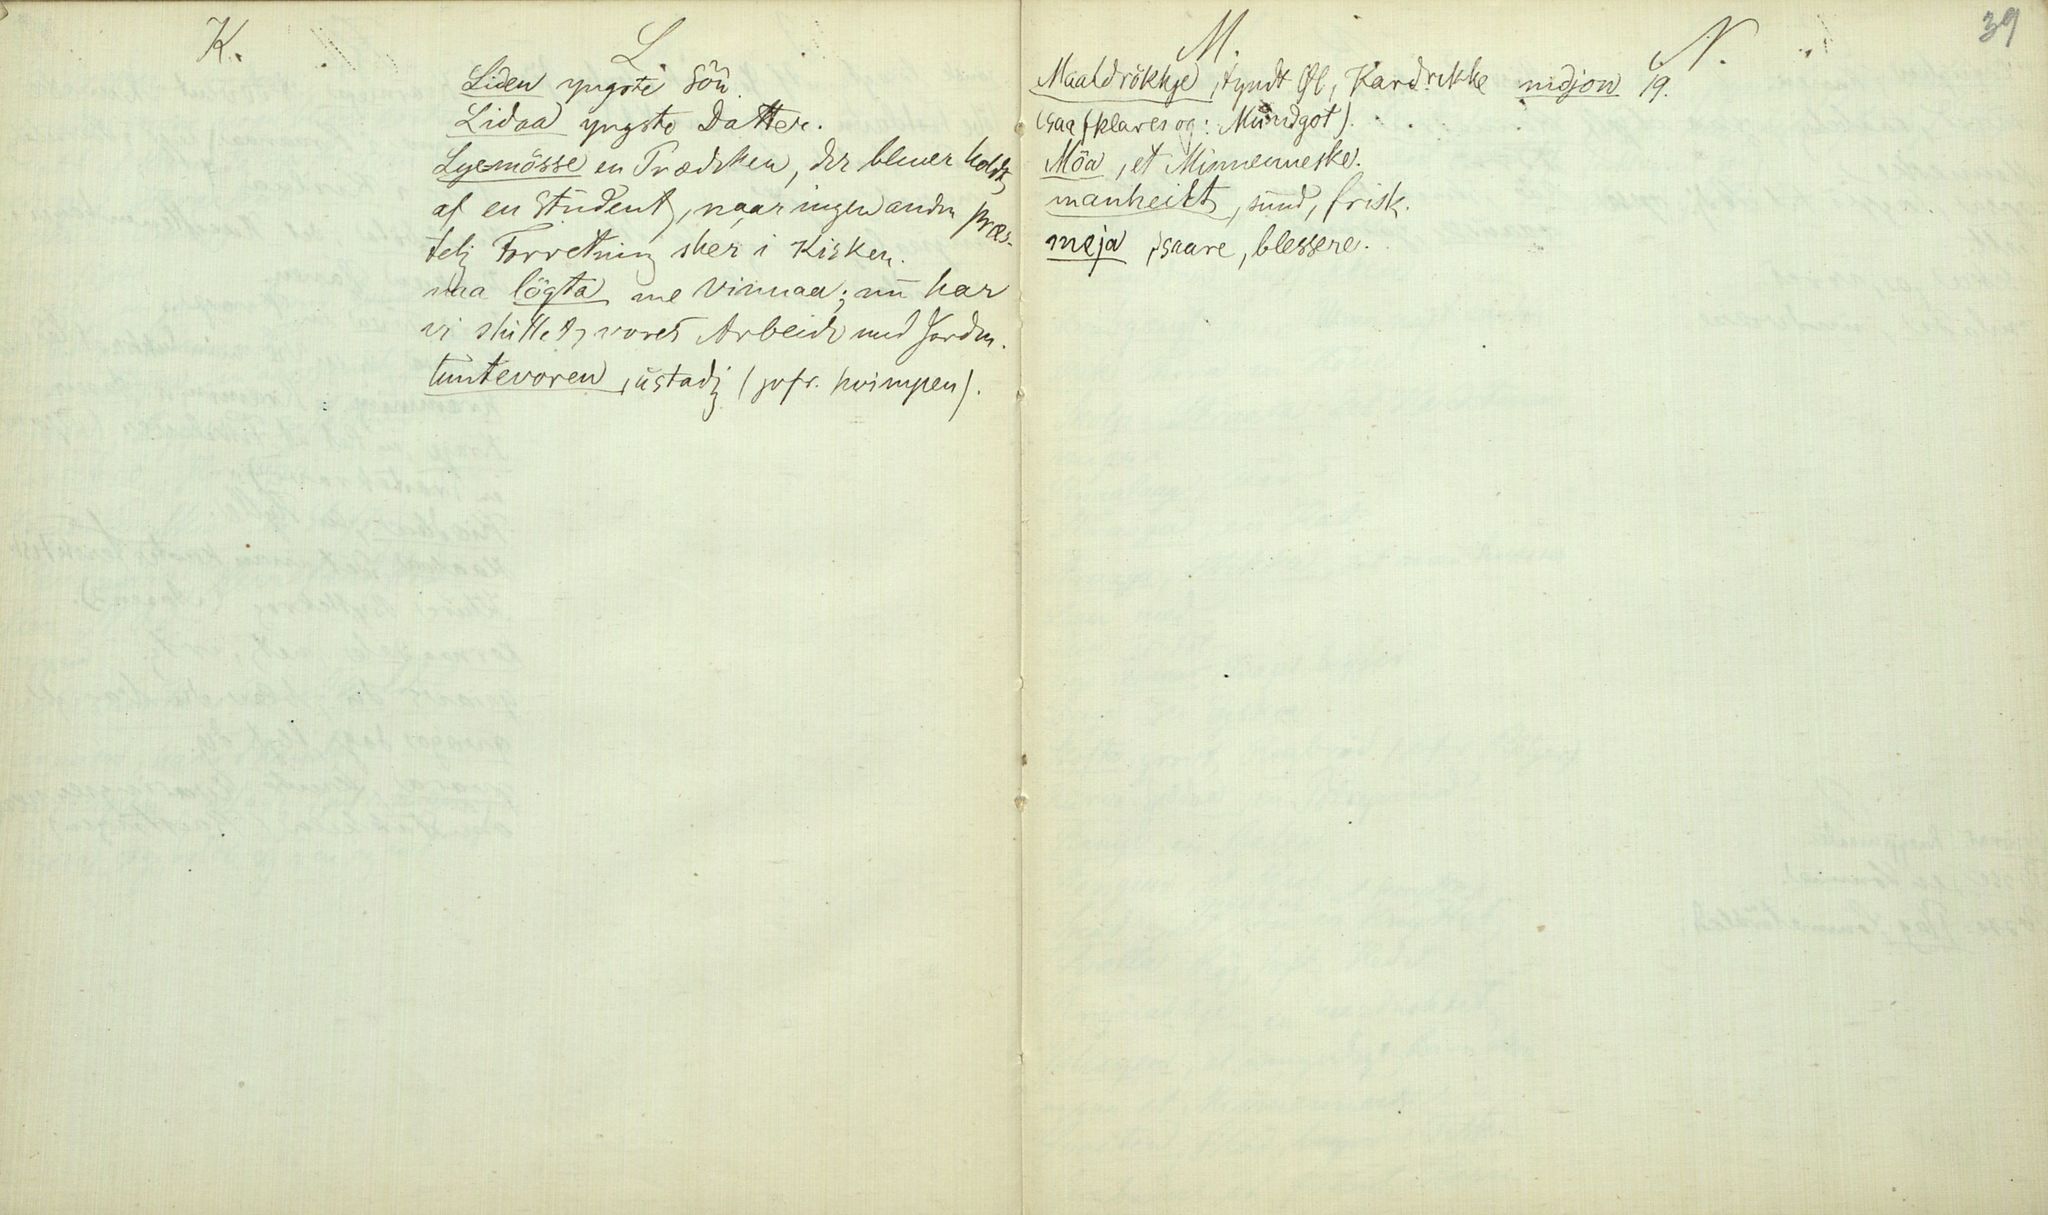 K.
L
Liden yngste Sön.
Lidaa yngste Datter.
Lyemösse en Prædiken, der bliver holdt
af en Student, naar ingen anden præs-
telig Forretning sker i Kirken.
naa lögta me Vinnaa; nu har
vi sluttet vores Arbeide med Jorden.
luntevoren, ustadig (jvfr. kvimpen).
M.
Maaldrökkje, tyndt Øl, Kardrikke
(saa forklares og: Mundgot).
Möa, et Minnenneske.
manheilt, sund, frisk.
meja, saare, blessere.
N.
nidjon 19.
39